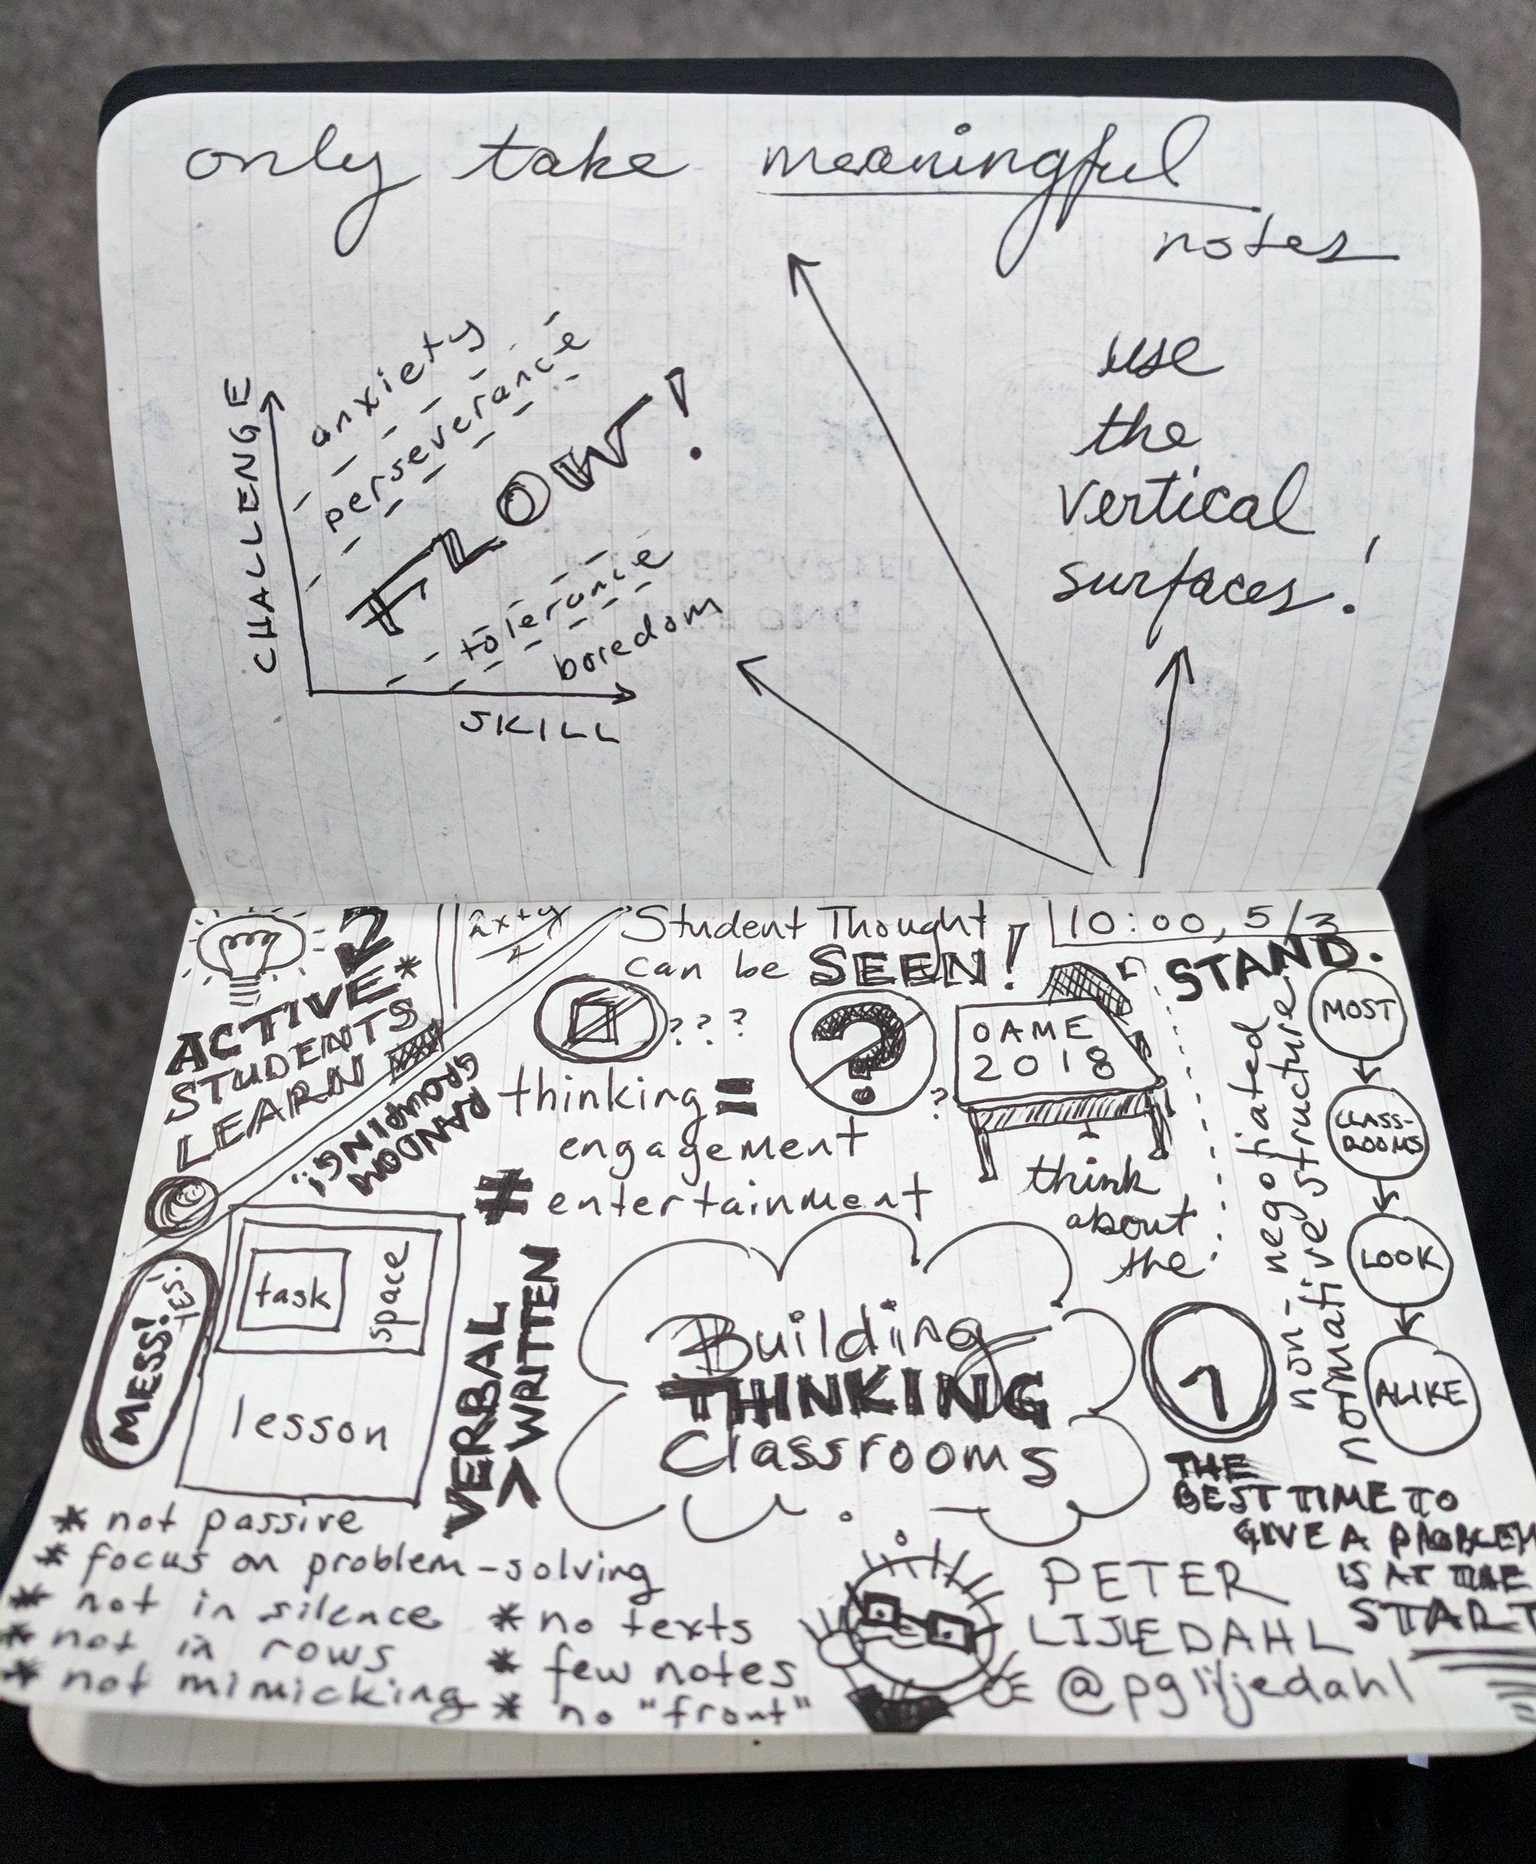 only take meaningful
notes
CHALLENGE
anxiety
perseverance
FLOW!
tolerance
boredom
SKILL
use
the
vertical
surfaces!
2
ACTIVE*
STUDENTS
LEARN
2x+y
4
RANDOM
GROUPING!
Student Thought
can be SEEN!
???
thinking =
engagement
≠ entertainment
?
?
OAME
2018
think
about
the
10:00, 5/3
STAND.
non-negotiated
normative structure
MOST
CLASS-
ROOMS
LOOK
ALIKE
MESS!
YES!
task
space
lesson
VERBAL
> WRITTEN
Building
THINKING
Classrooms
1
THE
BEST TIME TO
GIVE A PROBLEM
IS AT THE
START
* not passive
* focus on problem-solving
* not in silence
* not in rows
* not mimicking
* no texts
* few notes
* no "front"
PETER
LIJLEDAHL
@pgliljedahl